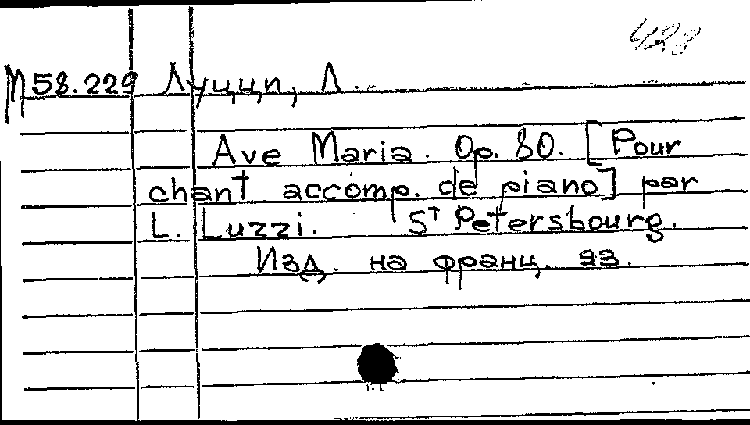 428
М58.229 Луцци, Л.
Ave Maria. Op. 80. [Pour
chant accomp. de piano] par
L. Luzzi. St Petersbourg.
Изд. на франц. яз.